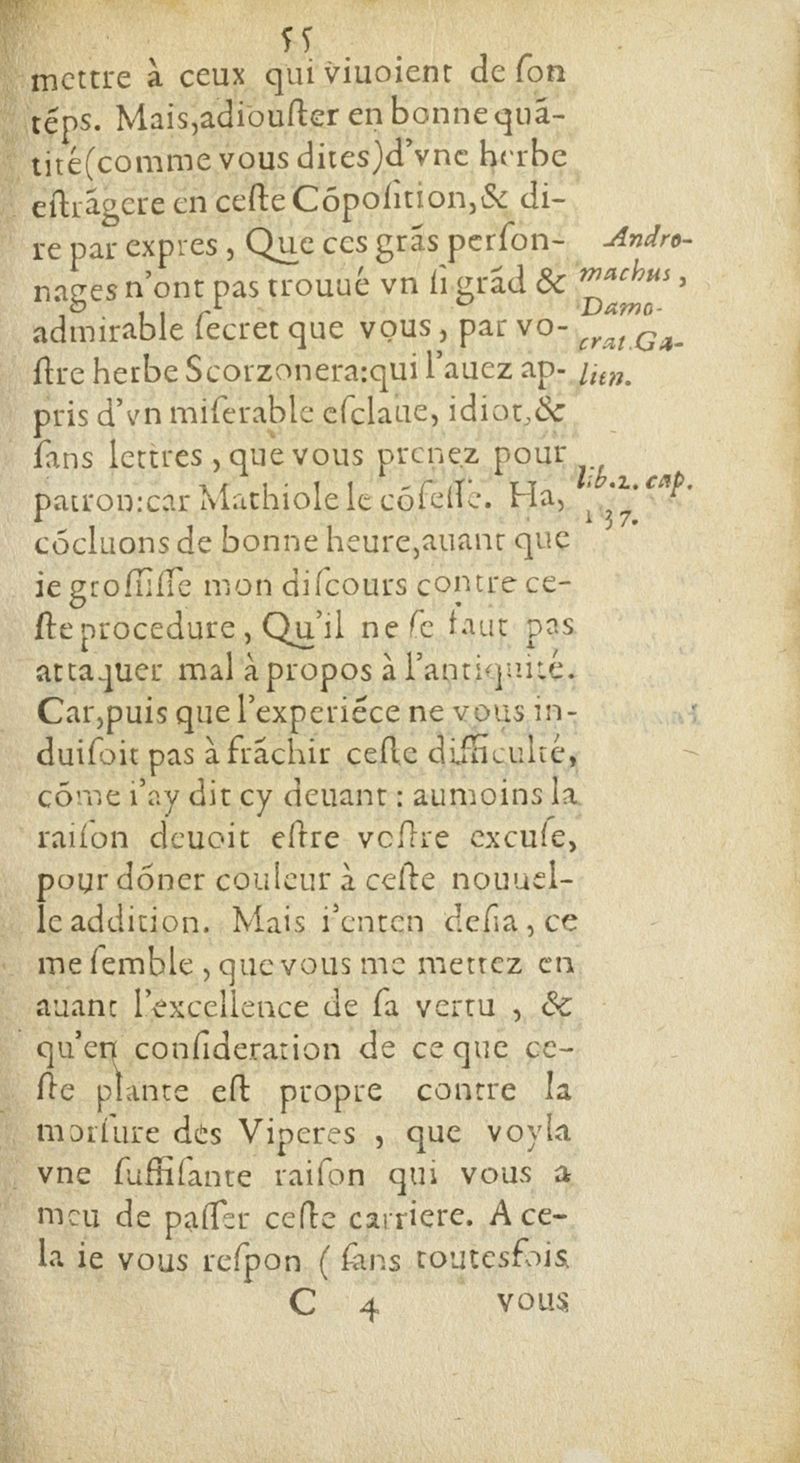 55
mettre à ceux qui viuoient de ſon
tẽps. Mais,adiouſter en bonne quã-
tité(comme vous dites)d’vne herbe
eſtrãgere en ceſte Cõpoſition,& di-
re par expres , Que ces grãs perſon-
nages n’ont pas trouué vn ſi grãd &
admirable ſecret que vous , par vo-
ſtre herbe Scorzonera:qui l’auez ap-
pris d’vn miſerable eſclaue, idiot,&
ſans lettres , que vous prenez pour
patron:car Mathiole le cõfeſſe. Ha,
cõcluons de bonne heure,auant que
ie groſſiſſe mon diſcours contre ce-
ſte procedure , Qu’il ne ſe faut pas
attaquer mal à propos à l’antiquité.
Car,puis que l’experiẽce ne vous in-
duiſoit pas à frãchir ceſte difficulté,
cõme i’ay dit cy deuant : aumoins la
raiſon deuoit eſtre voſtre excuſe,
pour dõner couleur à ceſte nouuel-
le addition. Mais i’enten deſia , ce
me ſemble , que vous me mettez en
auant l’excellence de ſa vertu , &
qu’en conſideration de ce que ce-
ſte plante eſt propre contre la
morſure des Viperes , que voyla
vne ſuffiſante raiſon qui vous a
meu de paſſer ceſte carriere. A ce-
la ie vous reſpon ( ſans toutesfois
C 4 vous
Andro-
machus ,
Damo-
crat.Ga-
lien.
lib.2. cap.
137.